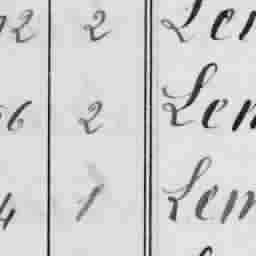 72 2 Len
56 2 Lem
4 1 Lem